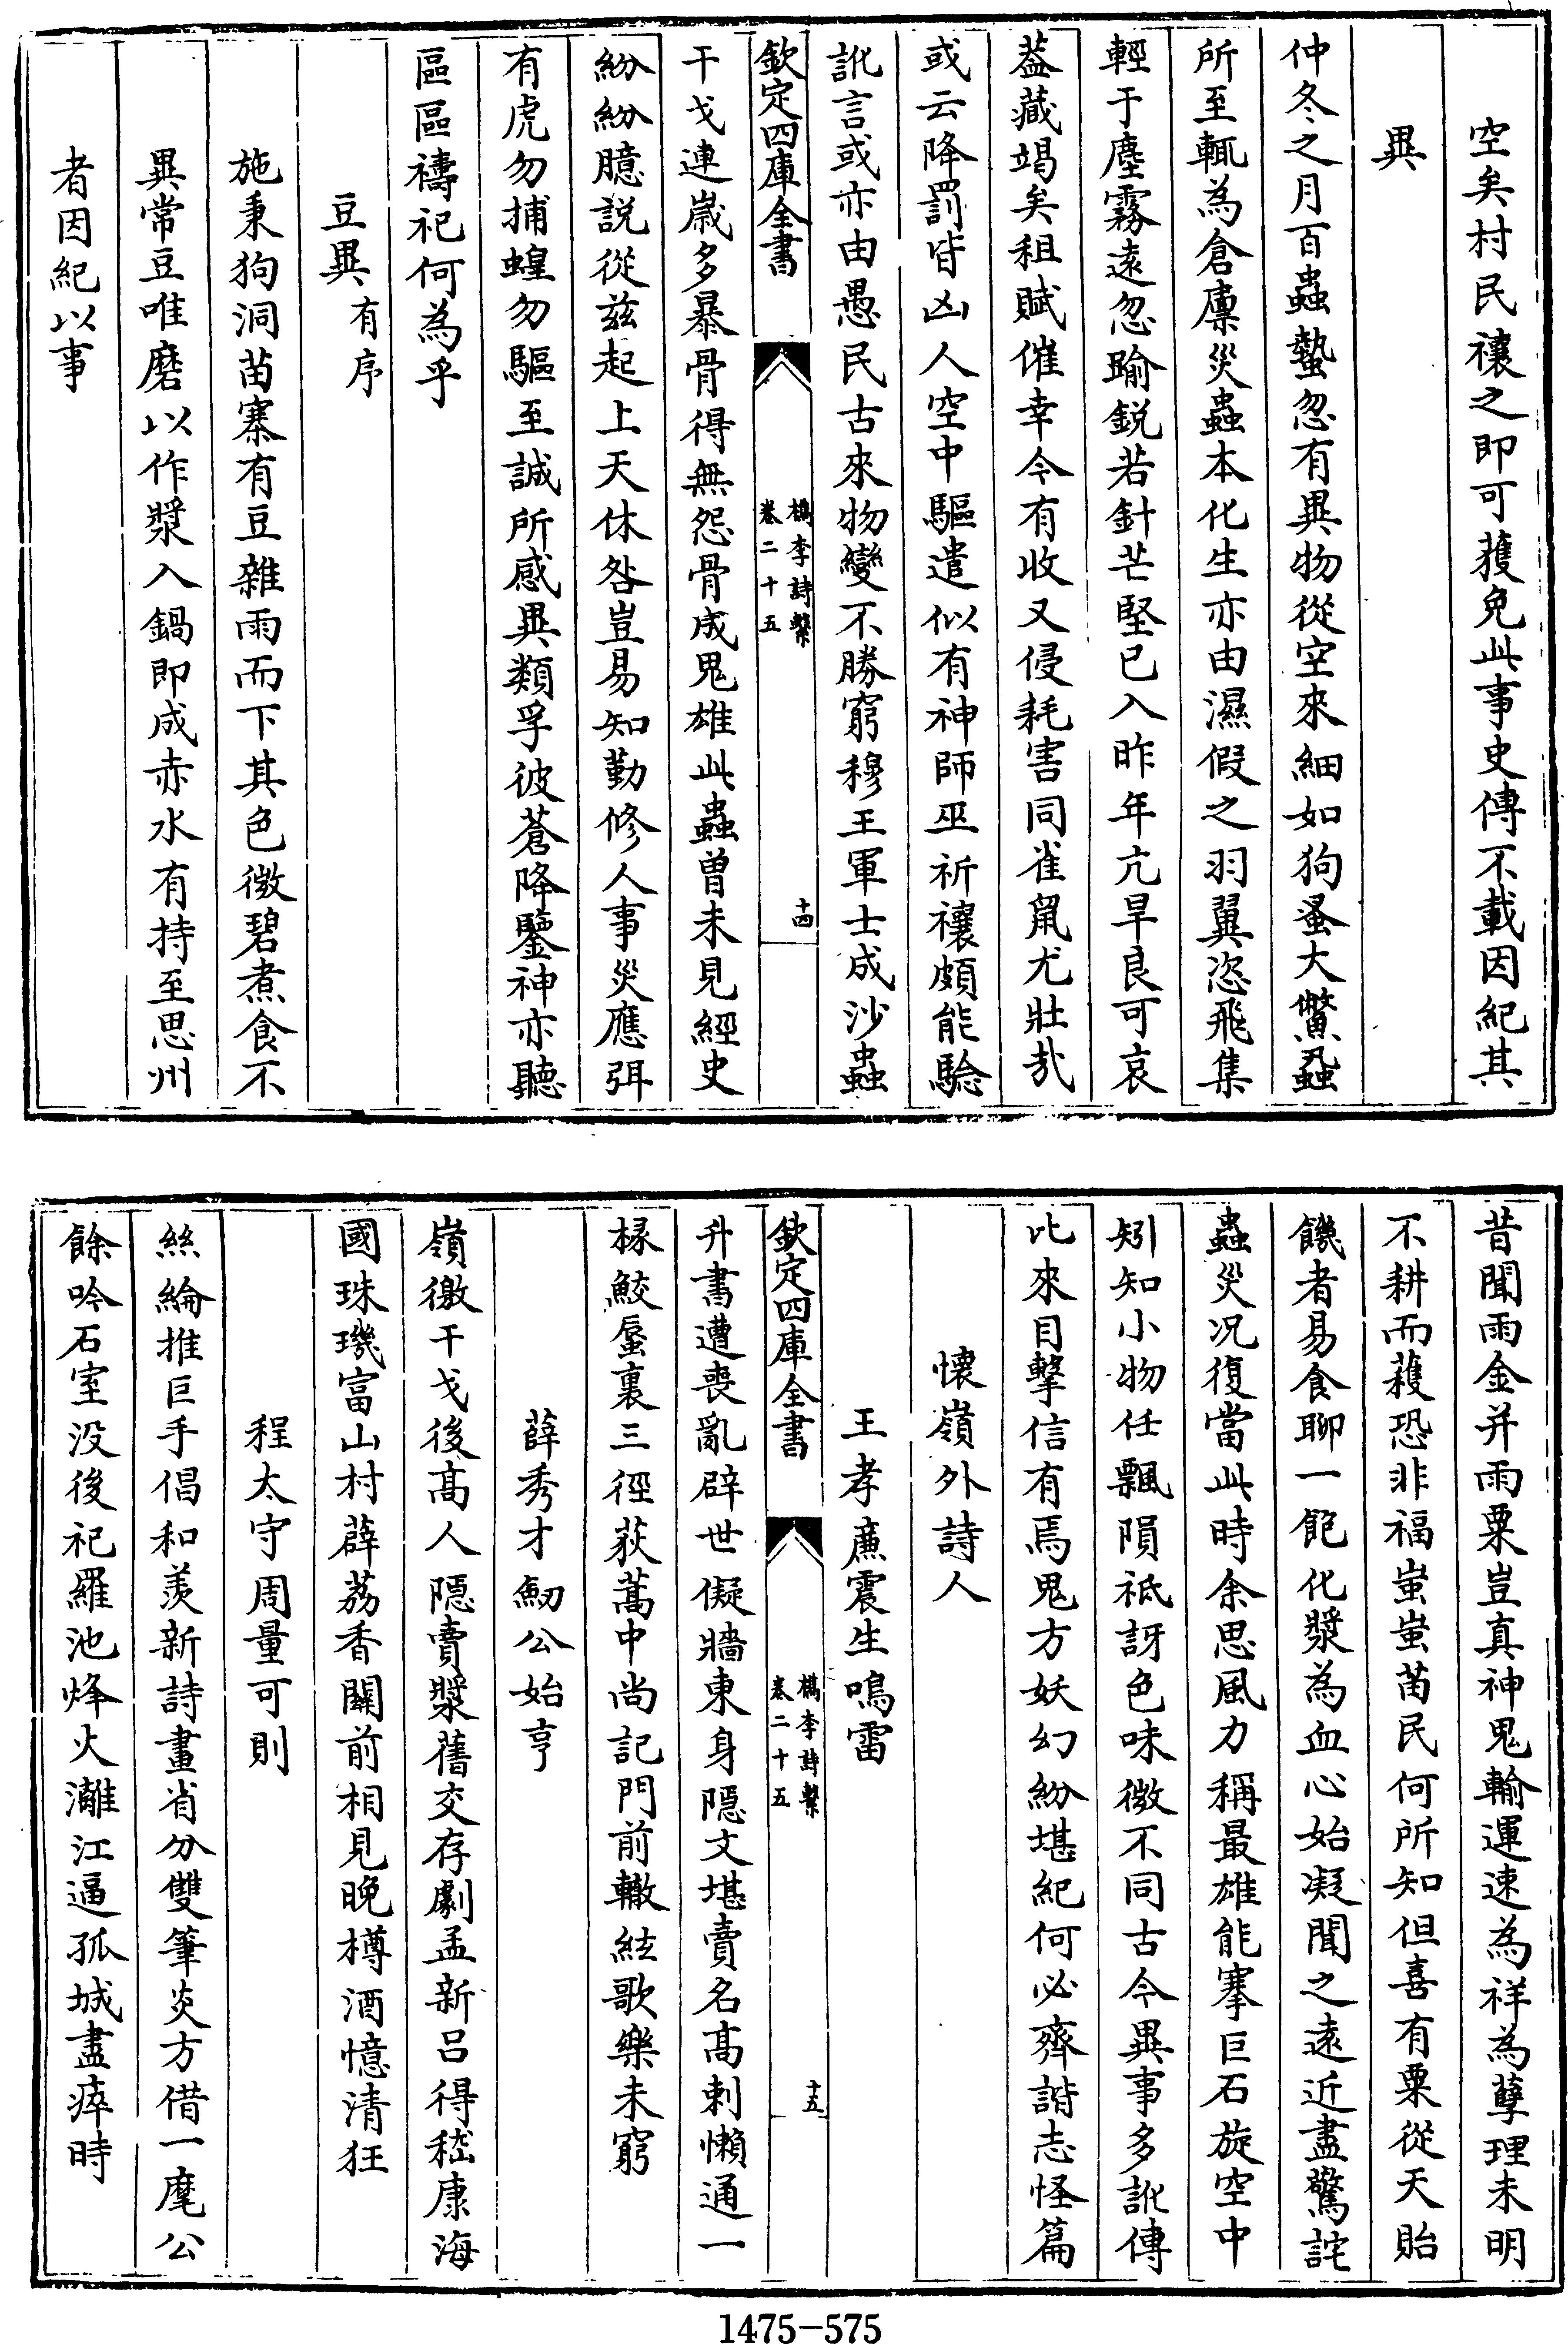 空矣村民禳之即可獲免此事史傳不載因紀其
異
仲冬之月百蟲蟄忽有異物從空來細如狗蚤大鱉蝨
所至輒為倉廩災蟲本化生亦由濕假之羽翼恣飛集
輕于塵霧遠忽踰鋭若針芒堅已入昨年亢旱良可哀
葢藏竭矣租賦催幸今有收又侵耗害同雀䑕尤壯哉
或云降罰皆凶人空中驅遣似有神師巫祈禳頗能驗
訛言或亦由愚民古來物變不勝窮穆王軍士成沙蟲
欽定四庫全書
檇李詩繫
卷二十五
十四
干戈連嵗多暴骨得無怨骨成鬼雄此蟲曾未見經史
紛紛臆説從兹起上天休咎豈易知勤修人事災應弭
有虎勿捕蝗勿驅至誠所感異類孚彼蒼降鑒神亦聽
區區禱祀何為乎
豆異有序
施秉狗洞苗寨有豆雜雨而下其色微碧煮食不
異常豆唯磨以作漿入鍋即成赤水有持至思州
者因紀以事
昔聞雨金并雨粟豈真神鬼輸運速為祥為孽理未明
不耕而穫恐非福蚩蚩苗民何所知但喜有粟從天貽
饑者易食聊一飽化漿為血心始凝聞之遠近盡驚詫
蟲災况復當此時余思風力稱最雄能搴巨石旋空中
矧知小物任飄隕祗訝色味微不同古今異事多訛傳
比來目擊信有焉鬼方妖幻紛堪紀何必齊諧志怪篇
懷嶺外詩人
王孝亷震生鳴雷
欽定四庫全書
檇李詩繫
卷二十五
十五
升書遭喪亂辟世儗牆東身隠文堪賣名髙刺懶通一
椽鮫蜃裏三徑荻蒿中尚記門前轍絃歌樂未窮
薛秀才劒公始亨
嶺徼干戈後髙人隠賣漿舊交存劇孟新呂得嵇康海
國珠璣富山村薜荔香闗前相見晚樽酒憶清狂
程太守周量可則
絲綸推巨手倡和羨新詩畫省分雙筆炎方借一麾公
餘吟石室没後祀羅池烽火灕江逼孤城盡瘁時
1475-575